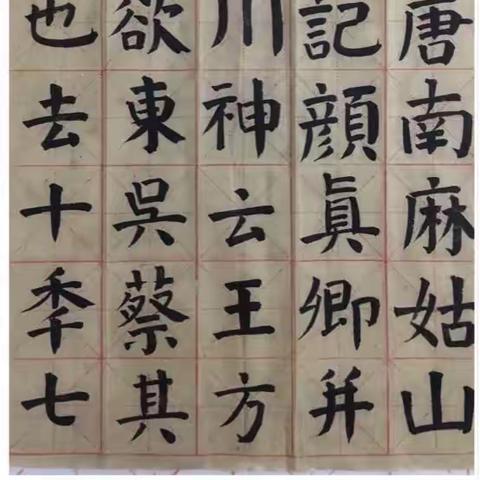 唐南麻姑山
記顔眞卿并
川神云王方
欲東吳蔡其
也去十秊七